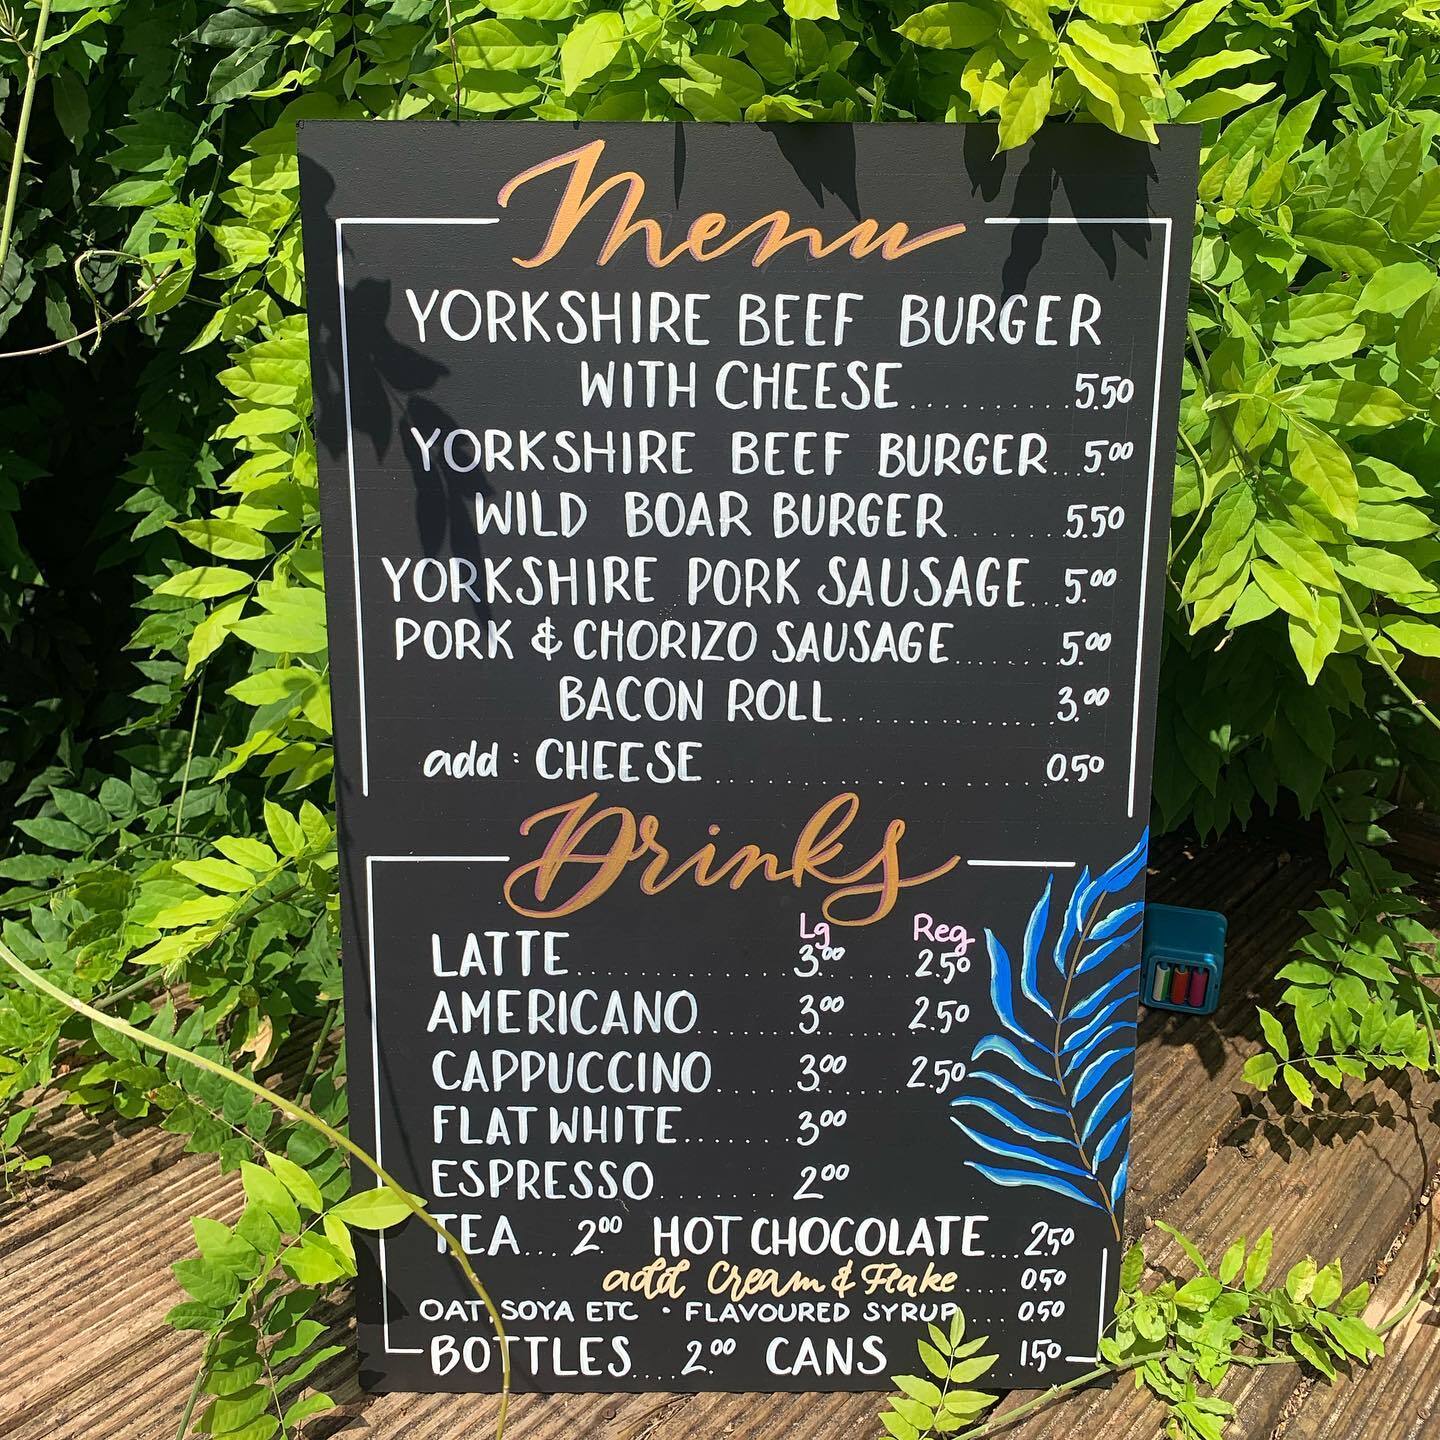 Menu
YORKSHIRE BEEF BURGER
WITH CHEESE.........5.50
YORKSHIRE BEEF BURGER...5.00
WILD BOAR BURGER.......5.50
YORKSHIRE PORK SAUSAGE...5.00
PORK & CHORIZO SAUSAGE.......5.00
BACON ROLL.............3.00
add : CHEESE...................0.50
Drinks
Lg Reg
LATTE.............3.00.....2.50
AMERICANO......3.00.....2.50
CAPPUCCINO.....3.00.....2.50
FLAT WHITE.......3.00
ESPRESSO........2.00
TEA... 2.00 HOT CHOCOLATE...2.50
add Cream & Flake....0.50
OAT SOYA ETC • FLAVOURED SYRUP....0.50
BOTTLES... 2.00 CANS ... 1.50